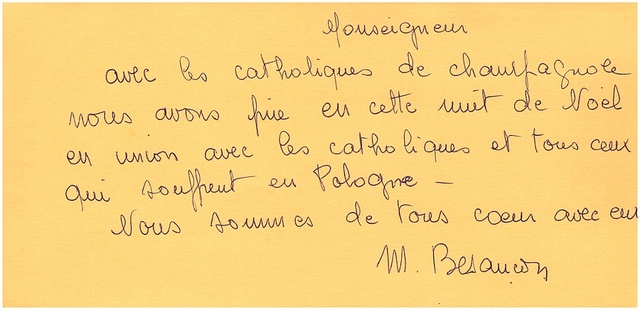 Monseigneur
avec les catholiques de champagnole
nous avons prié en cette nuit de Noël
en union avec les catholiques et tous ceux
qui souffrent en Pologne –
Nous sommes de tous coeur avec eu
M. Besançon